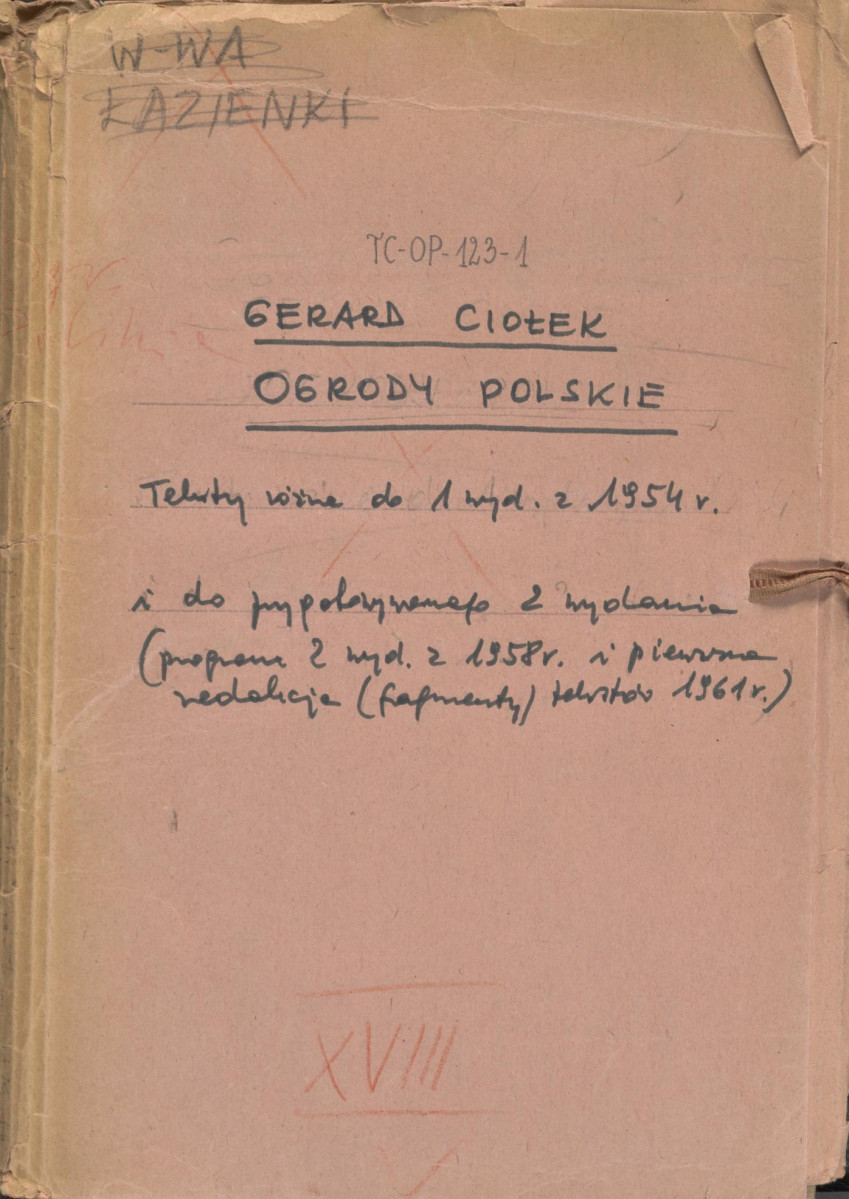 W-WA
ŁAZIENKI
TC-OP-123-1
GERARD CIOŁEK
OGRODY POLSKIE
Teksty różne do 1 wyd. z 1954 r.
i do przygotowywanego 2 wydania
(program 2 wyd. z 1958r. i pierwsza
redakcja (fragmenty) tekstów 1961r.)
XVIII